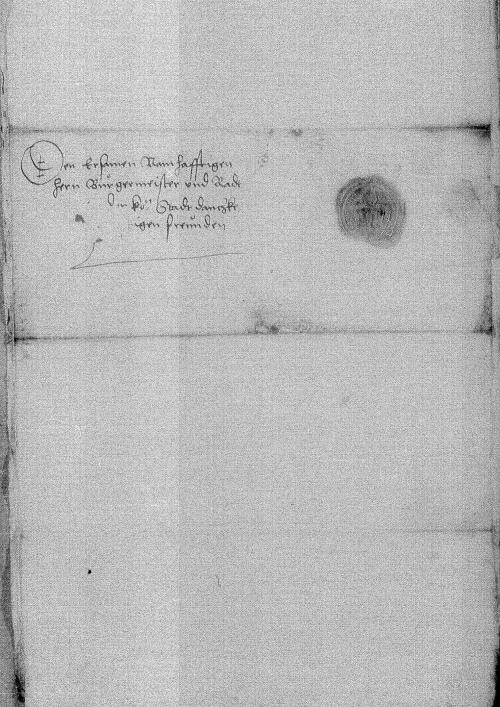 Den Ersamen Namhafftigen
hern Burgermeister vnd Radt
d in ko: Stadt dantzke
gen freunden